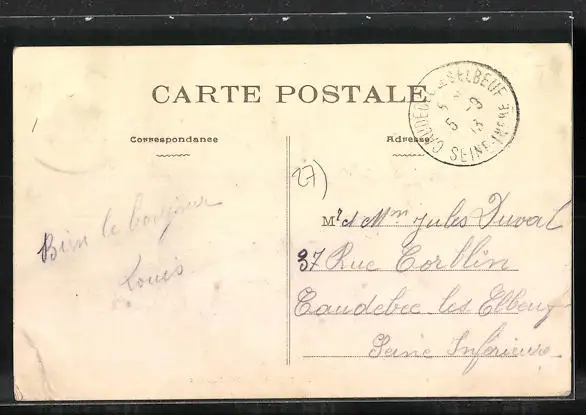 CARTE POSTALE
Correspondance
Adresse
CAUDEBEC-LES-ELBEUF
5 -9
13
SEINE-INFRE
27)
Bien le bonjour
Louis
Mr et Mme Jules Duval
37 Rue Corblin
Caudebec les Elbeuf
Seine Inférieure